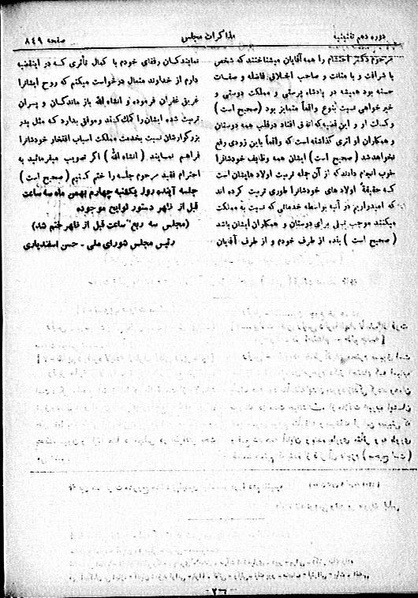 دوره دهم تقنینیه
مذاکرات مجلس
صفحه ۸۴۹
مرحوم دکتر احتشام را همه آقایان میشناختند که شخص
با شرافت و با متانت و صاحب اخلاق فاضله و صفات
حسنه بود همیشه در پادشاه پرستی و مملکت دوستی و
خیر خواهی نسبت بنوع واقعاً متمایز بود (صحیح است)
و کسان او و این قضیه که اتفاق افتاد در قلب همه دوستان
و همکاران او اثری گذاشته است که واقعاً باین زودی رفع
نخواهد شد (صحیح است) ایشان همه وظایف خودشانرا
خوب انجام دادند که از آن جمله تربیت اولاد هایشان است
که حقیقةً اولاد های خودشانرا طوری تربیت کرده اند
که امیدواریم در آتیه بواسطه خدماتی که نسبت به مملکت
میکنند موجب تسلی برای دوستان و همکاران ایشان باشد
(صحیح است) بنده از طرف خودم و از طرف آقایان
نمایندگان رفقای خودم با کمال تأثری که در اینقضیه
دارم از خداوند متعال درخواست میکنم که روح ایشانرا
غریق غفران فرموده و انشاءالله باز ماندگان و پسران
تربیت شده ایشان را کمک کند و موفق بدارد که مثل پدر
بزرگوارشان نسبت بخدمت مملکت اسباب افتخار خودشانرا
فراهم نمایند (انشاءالله) اگر تصویب میفرمائید به
احترام فقید مرحوم جلسه را ختم کنیم (صحیح است)
جلسه آینده روز یکشنبه چهارم بهمن ماه سه ساعت
قبل از ظهر دستور لوایح موجوده
(مجلس سه ربع ساعت قبل از ظهر ختم شد)
رئیس مجلس شورای ملی - حسن اسفندیاری